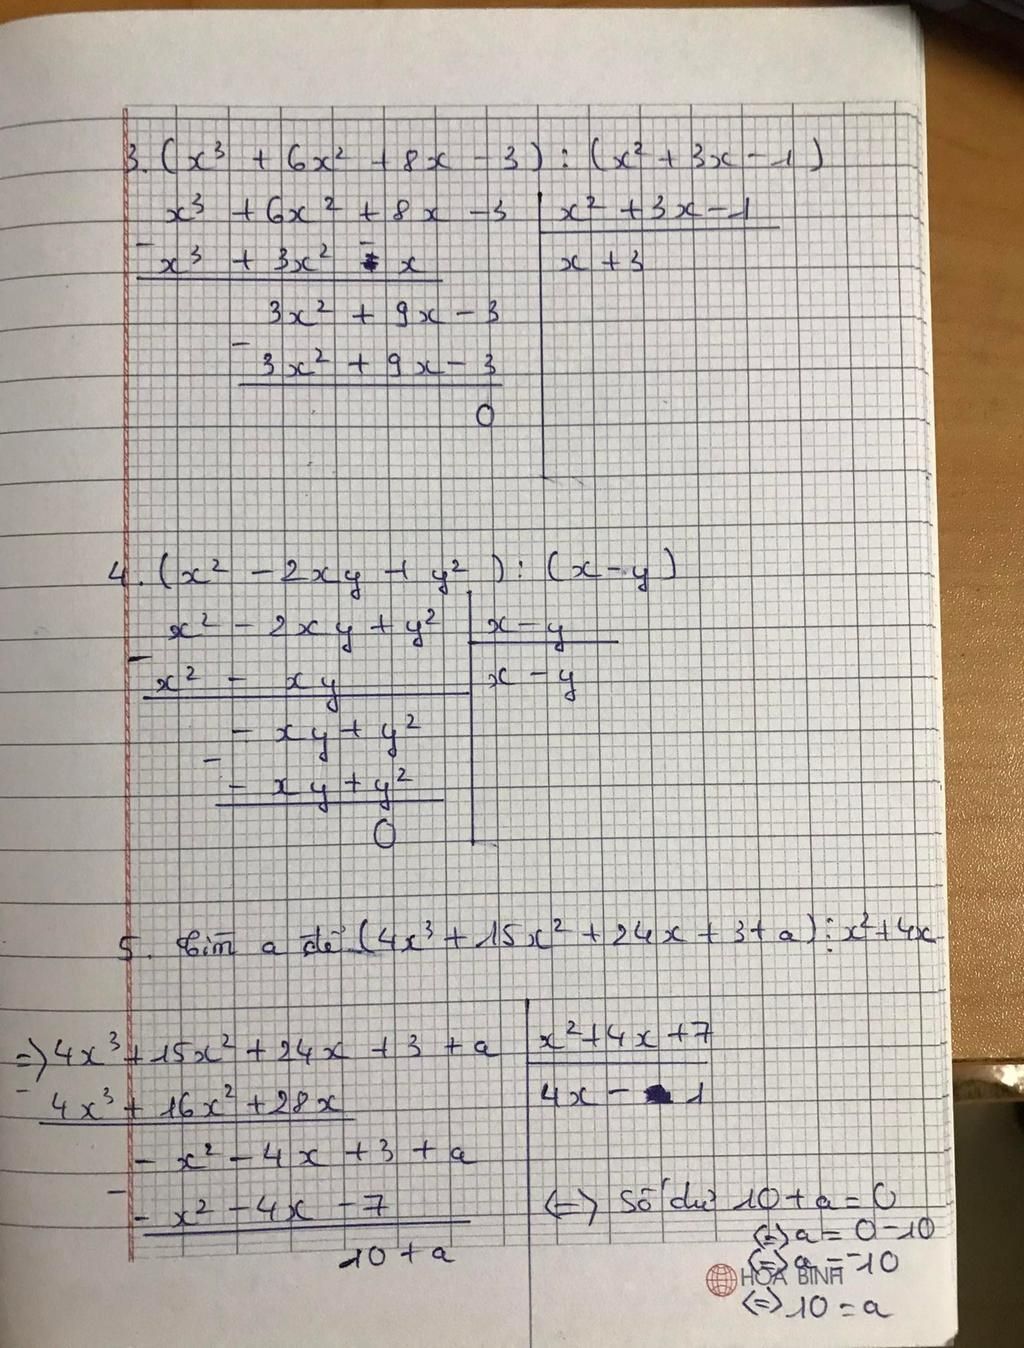 3. (x³ + 6x² + 8x - 3) : (x² + 3x - 1)
x³ + 6x² + 8x - 3 | x² + 3x - 1
- x³ + 3x² - x | x + 3
3x² + 9x - 3
- 3x² + 9x - 3
0
4. (x² - 2xy + y²) : (x - y)
x² - 2xy + y² | x - y
- x² - xy | x - y
- xy + y²
- - xy + y²
0
5. tìm a để (4x³ + 15x² + 24x + 3 + a) ⋮ x² + 4x
=> 4x³ + 15x² + 24x + 3 + a | x² + 4x + 7
- 4x³ + 16x² + 28x | 4x - 1
- x² - 4x + 3 + a
- - x² - 4x - 7
10 + a
<=> Số dư 10 + a = 0
<=> a = 0 - 10
<=> a = -10
<=> 10 = a
HOA BINH